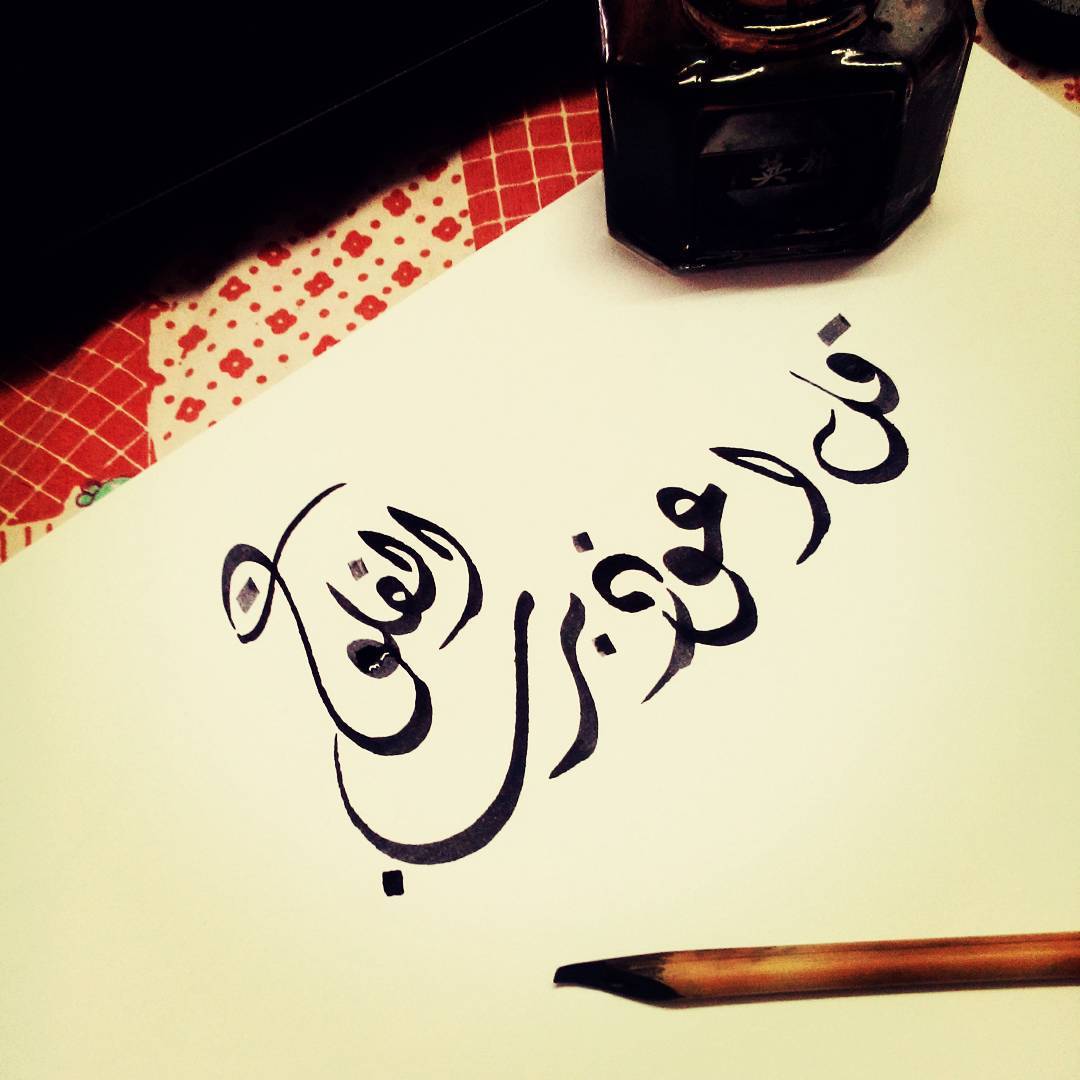 قل أعوذ برب الفلق
英雄